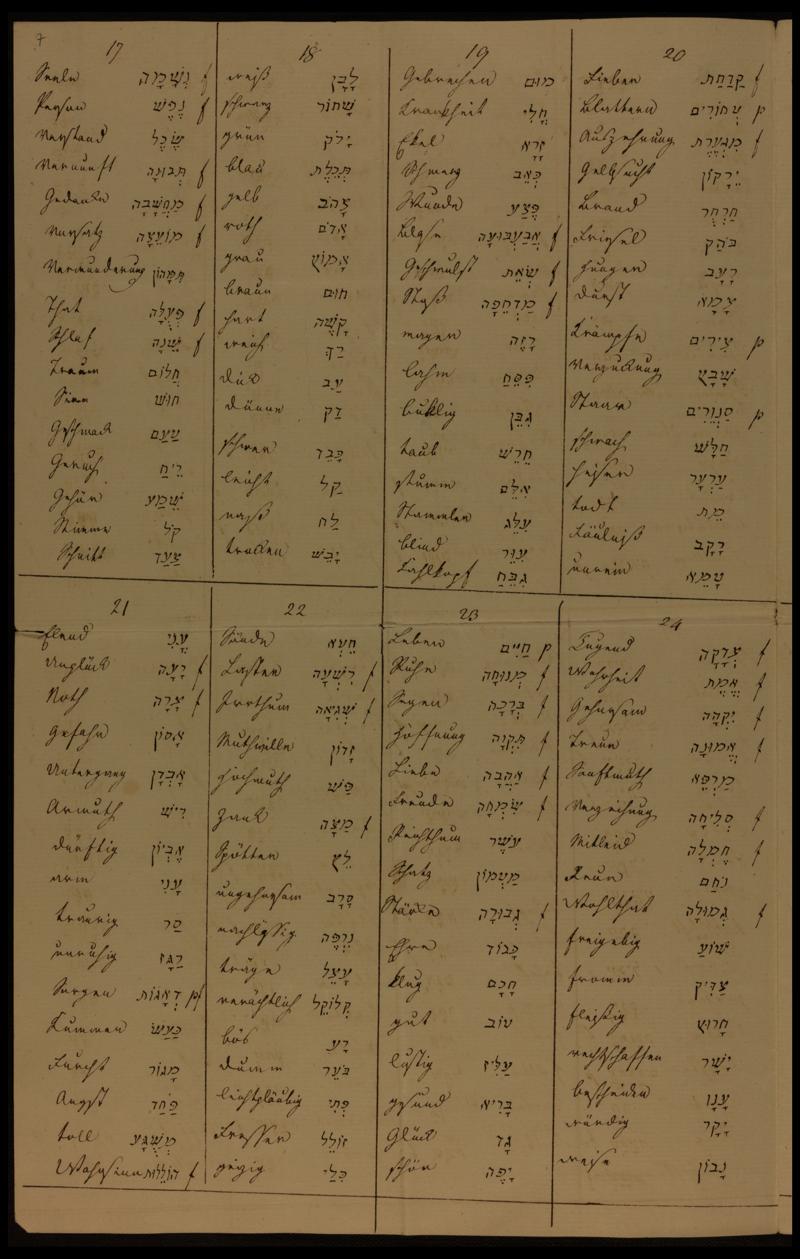 7
17
Seele נְשָׁמָה f
Person נֶפֶשׁ f
Verstand שֵׂכֶל
Vernunft תְּבוּנָה f
Gedanke מַחֲשָׁבָה f
Vorsatz מוֹעֵצָה f
Verwunderung תִּמָּהוֹן
That פְּעֻלָּה f
Schlaf שֵׁנָה f
Traum חֲלוֹם
Sinn חוּשׁ
Geschmack טַעַם
Geruch רֵיחַ
Gehör שֵׁמַע
Stimme קוֹל
Schritt צַעַד
18
weiß לָבָן
schwarz שָׁחוֹר
grün יָרֹק
blau תְּכֵלֶת
gelb צָהֹב
roth אָדֹם
grau אָמוֹץ
braun חוּם
hart קָשֶׁה
weich רַךְ
dick עַב
dünn דַּק
schwer כָּבֵד
leicht קַל
naß לַח
trocken יָבֵשׁ
19
Gebrechen מוּם
Krankheit חֳלִי
Ekel זָרָא
Schmerz כְּאֵב
Wunde פֶּצַע
Blase אֲבַעְבּוּעָה f
Geschwulst שְׂאֵת f
מַדְחֵפָה f
mager רָזֶה
lahm פִּסֵּחַ
buklig גִּבֵּן
taub חֵרֵשׁ
stumm אִלֵּם
Stammler עִלֵּג
blind עִוֵּר
Kahlkopf גִּבֵּחַ
20
Fieber קַדַּחַת f
Blattern טְחוֹרִים p
Auszehrung מִגְעֶרֶת f
Gelbsucht יֵרָקוֹן
Brand חַרְחֻר
Friesel בֹּהַק
Hunger רָעָב
Durst צָמָא
Krämpfe צִירִים p
Verzuckung שָׁבָץ
Staar סַנְוֵרִים p
schwach חַלָּשׁ
heiser עַרְעָר
todt מֵת
Fäulniß רָקָב
unrein טָמֵא
21
Elend עֳנִי
Unglück רָעָה f
Noth צָרָה f
Gefahr אָסוֹן
Untergang אָבְדָן
Armuth רֵישׁ
dürftig אֶבְיוֹן
arm עָנִי
traurig סַר
unruhig רַגָּז
Sorgen דְאָגוֹת pf
Kummer כַּעַשׂ
Furcht מָגוֹר
Angst פַּחַד
toll מְשֻׁגָּע
Wahnsinn הוֹלֵלוּת f
22
Sünde חֵטְא
Laster רִשְׁעָה f
Irrthum שְׁגִיאָה f
Muthwille זָדוֹן
Hochmuth פַּשׁ
Zank מַצָּה f
Spötter לֵץ
ungehorsam סָרָב
nachläßig נִרְפֶּה
träge עָצֵל
verächtlich קְלוֹקֵל
bös רָע
dumm בֹּעֵר
leichtgläubig פֶּתִי
Fresser זוֹלֵל
geizig כִּלַי
23
Leben חַיִּים p
Ruhe מְנוּחָה f
Segen בְּרָכָה f
Hoffnung תִּקְוָה f
Liebe אַהֲבָה f
Freude שִׂמְחָה f
Reichthum עֹשֶׁר
Schatz מַטְמוֹן
Stärke גְּבוּרָה f
Ehre כָּבוֹד
klug חָכָם
gut טוֹב
lustig עַלִּיז
gesund בָּרִיא
Glück גָּד
schön יָפֶה
24
Tugend צְדָקָה f
Wahrheit אֱמֶת f
Gehorsam יִקְּהָה f
Treue אֱמוּנָה f
Sanftmuth מַרְפֵּא
Verzeihung סְלִיחָה f
Mitleid חֶמְלָה f
Reue נֹחַם
Wohlthat גְּמוּלָה f
freigebig שׁוֹעַ
fromm צַדִּיק
fleißig חָרוּץ
rechtschaffen יָשָׁר
bescheiden עָנָו
würdig יָקָר
weise נָבוֹן